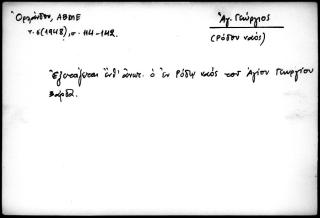 Ὀρλάνδος, ΑΒΜΕ
τ. 6 (1948), σ. 114-142.
Ἁγ. Γεώργιος
(Ρόδου ναός)
Ἐξετάζεται ἐνθ' ἀνωτ. ὁ ἐν Ρόδῳ ναός του Ἁγίου Γεωργίου
Βάρδα.